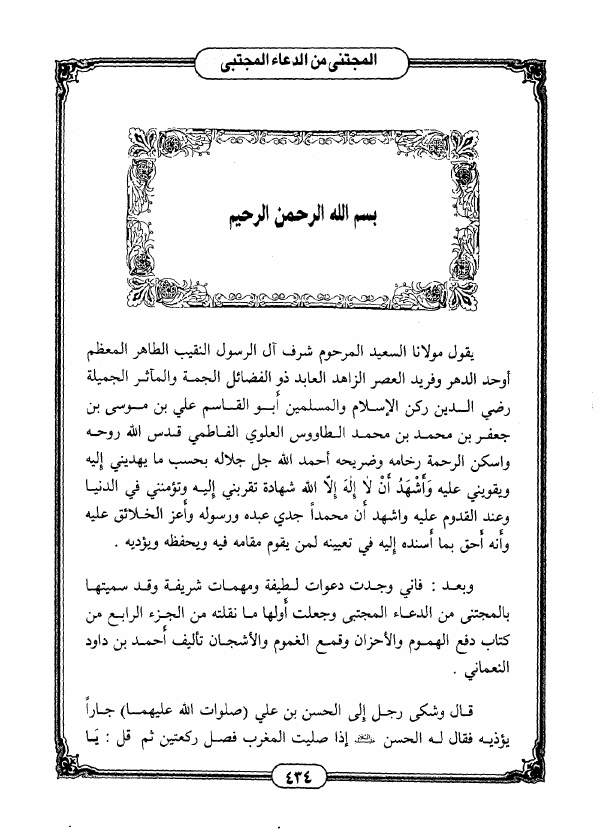 المجتنى من الدعاء المجتبى
بسم الله الرحمن الرحيم
يقول مولانا السعيد المرحوم شرف آل الرسول النقيب الطاهر المعظم
أوحد الدهر وفريد العصر الزاهد العابد ذو الفضائل الجمة والمآثر الجميلة
رضي الدين ركن الإسلام والمسلمين أبو القاسم علي بن موسى بن
جعفر بن محمد بن محمد الطاووس العلوي الفاطمي قدس الله روحه
واسكن الرحمة رخامه وضريحه أحمد الله جل جلاله بحسب ما يهديني إليه
ويقويني عليه وَأَشْهَدُ أَنْ لَا إِلَهَ إِلاّ الله شهادة تقربني إليه وتؤمنني في الدنيا
وعند القدوم عليه واشهد أن محمداً جدي عبده ورسوله وأعز الخلائق عليه
وأنه أحق بما أسنده إليه في تعيينه لمن يقوم مقامه فيه ويحفظه ويؤديه .
وبعد : فاني وجدت دعوات لطيفة ومهمات شريفة وقد سميتها
بالمجتنى من الدعاء المجتبى وجعلت أولها ما نقلته من الجزء الرابع من
كتاب دفع الهموم والأحزان وقمع الغموم والأشجان تأليف أحمد بن داود
النعماني .
قال وشكى رجل إلى الحسن بن علي (صلوات الله عليهما) جاراً
يؤذيه فقال له الحسن إذا صليت المغرب فصل ركعتين ثم قل : يَا
٤٣٤